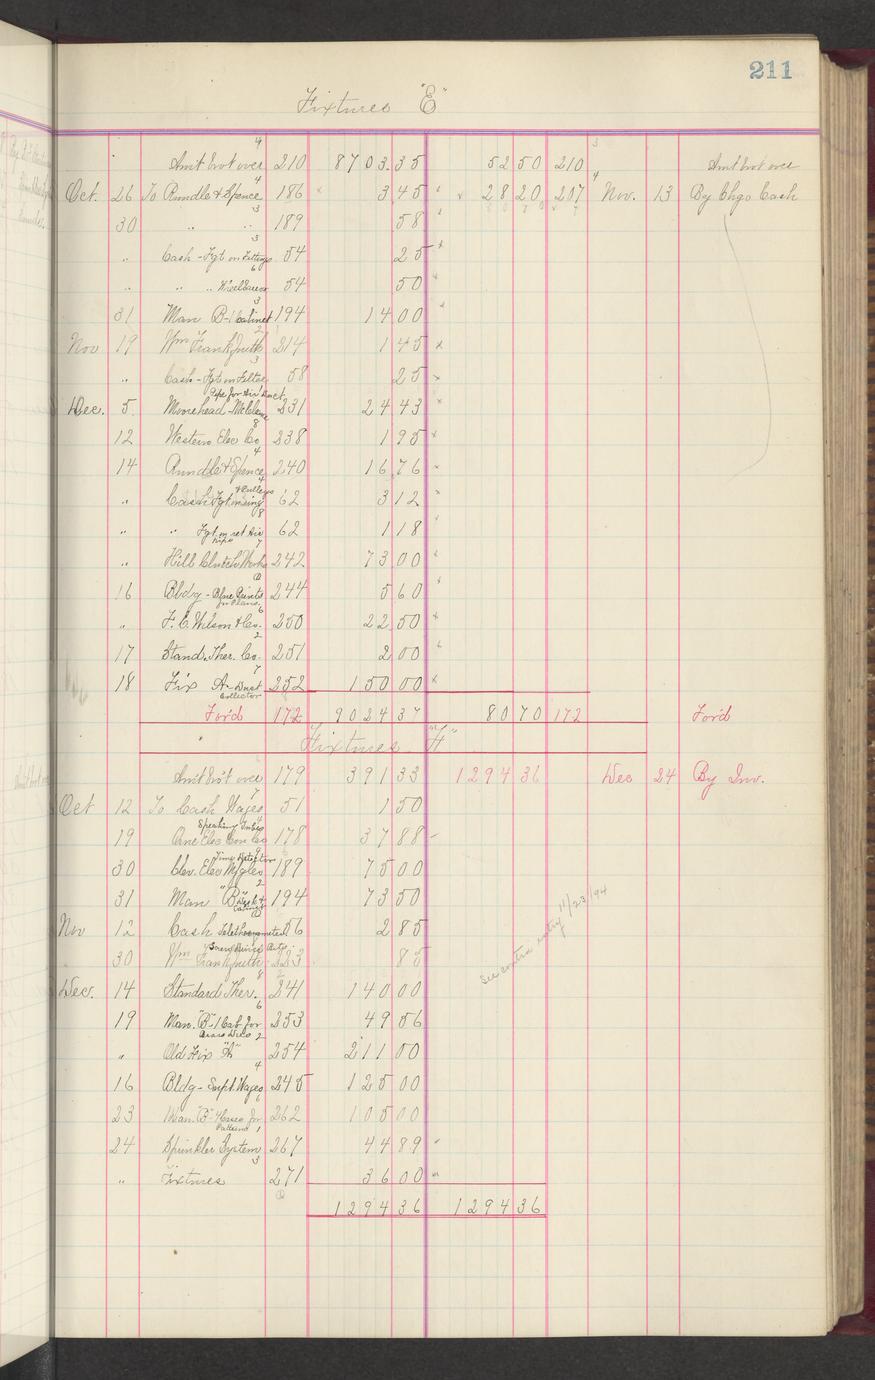 211
Fixtures "E"
Amt brot over 210 8703.35 52 50 210 Amt brot over
Oct. 26 To Rundle & Spence 186 3 45 28 20 207 Nov. 13 By Chgo Cash
30 " " 189 58
" Cash - Fgt on Fittings 54 25
" " " 54 50
31 Man B-1 Cabinet 194 14 00
Nov 19 Wm Frankfurth 214 1 45
" Cash - Fgt on Filter 58 25
Pipe for Air Duct
Dec. 5 Moorehead 231 24 43
12 Western Elec Co 238 1 95
14 Rundle & Spence 240 16 76
" Cash Fgt & Pulleys 62 3 12
" " Fgt on ret Air Pipe 62 1 18
" Hill Clutch Works 242 73 00
16 Bldg - Blue Prints for Plans 244 5 60
" F. C. Wilson & Co. 250 22 50
17 Stand. Ther. Co. 251 2 00
18 Fix A - Dust Collector 252 150 00
For'd 172 9024 37 80 70 172 For'd
Fixtures "H"
Amt bro't over 179 391 33 1294 36 Dec 24 By Inv.
Oct 12 To Cash Wages 51 1 50
Speaking Tubes
19 Elec Con Co 178 37 88
Time Detector
30 Clev. Elec Mfg Co 189 75 00
31 Man "B" Desk & Cabinet 194 73 50
Nov 12 Cash 56 2 85
30 Wm Frankfurth 223 85
See contra entry 11/23/94
Dec. 14 Standard Ther. 241 140 00
19 Man. "B" 1 Cab for 253 49 56
" Old Fix "A" 254 211 00
16 Bldg - Supt. Wages 245 125 00
23 Man. "B" 4 Cases for Patterns 262 105 00
24 Sprinkler System 267 44 89
" Fixtures 271 36 00
1294 36 1294 36